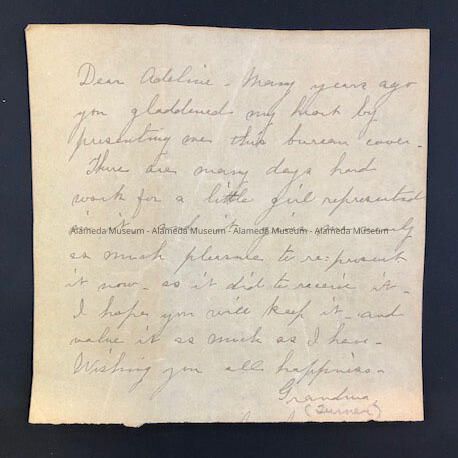 Dear Adeline - Many years ago
you gladdened my heart by
presenting me this bureau cover -
There are many days hard
work for a little girl represented
in it - and it gives me nearly
Alameda Museum - Alameda Museum - Alameda Museum - Alameda Museum
as much pleasure to re=present
it now - as it did to receive it -
I hope you will keep it - and
value it as much as I have -
Wishing you all happiness -
Grandma
(Turner)